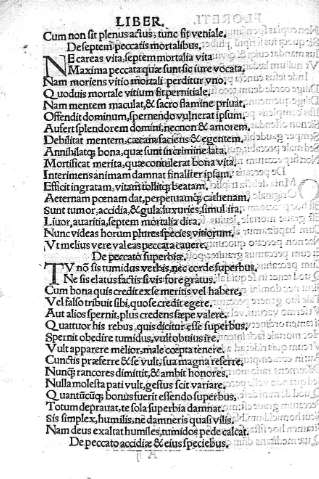 LIBER.
Cum non sit plenus actus, tunc sit veniale,
De septem peccatis mortalibus,
NE careas vita, septem mortalia vita
Maxima peccata quæ sunt sic iure vocata,
Nam moriens vitio mortali perditur vno,
Quoduis mortale vitium sit perniciale,
Nam mentem maculat, & sacro flamine priuat,
Offendit dominum, spernendo vulnerat ipsum,
Aufert splendorem domini, necnon & amorem,
Debilitat mentem, cæcam faciens & egentem,
Annihilatq; bona, quæ sunt in crimine lata,
Mortificat merita, quæ contulerat bona vita,
Interimens animam damnat finaliter ipsam,
Efficit ingratam, vitam tollitq; beatam,
Aeternam pœnam dat, perpetuamq; cathenam,
Sunt tumor, accidia, & gula, luxuries, simul ira,
Liuor, auaritia, septem mortalia dira,
Nunc videas horum plures species vitiorum,
Vt melius vere valeas peccata cauere,
De peccato superbiæ.
TV nõ sis tumidus verbis, nec corde superbus,
Ne sis elatus factis si vis fore gratus,
Cum bona quis credit ex se meritis vel habere,
Vel falso tribuit sibi, quo se credit egere,
Aut alios spernit, plus credens sæpe valere,
Quattuor his rebus, quis dicitur esse superbus,
Spernit obedire tumidus,
Vult apparere melior, male cœpta tenere,
Cunctis præferre & se vult, sua magna referre,
Nunq; rancores dimittit, & ambit honores,
Nulla molesta pati vult, gestus scit variare,
Quantũcũq; bonus fuerit essendo superbus,
Totum deprauat, te sola superbia damnat,
Sis simplex, humilis, ne damneris quasi vilis,
Nam deus exaltat humiles, tumidos pede calcat.
De peccato accidiæ & eius speciebus,